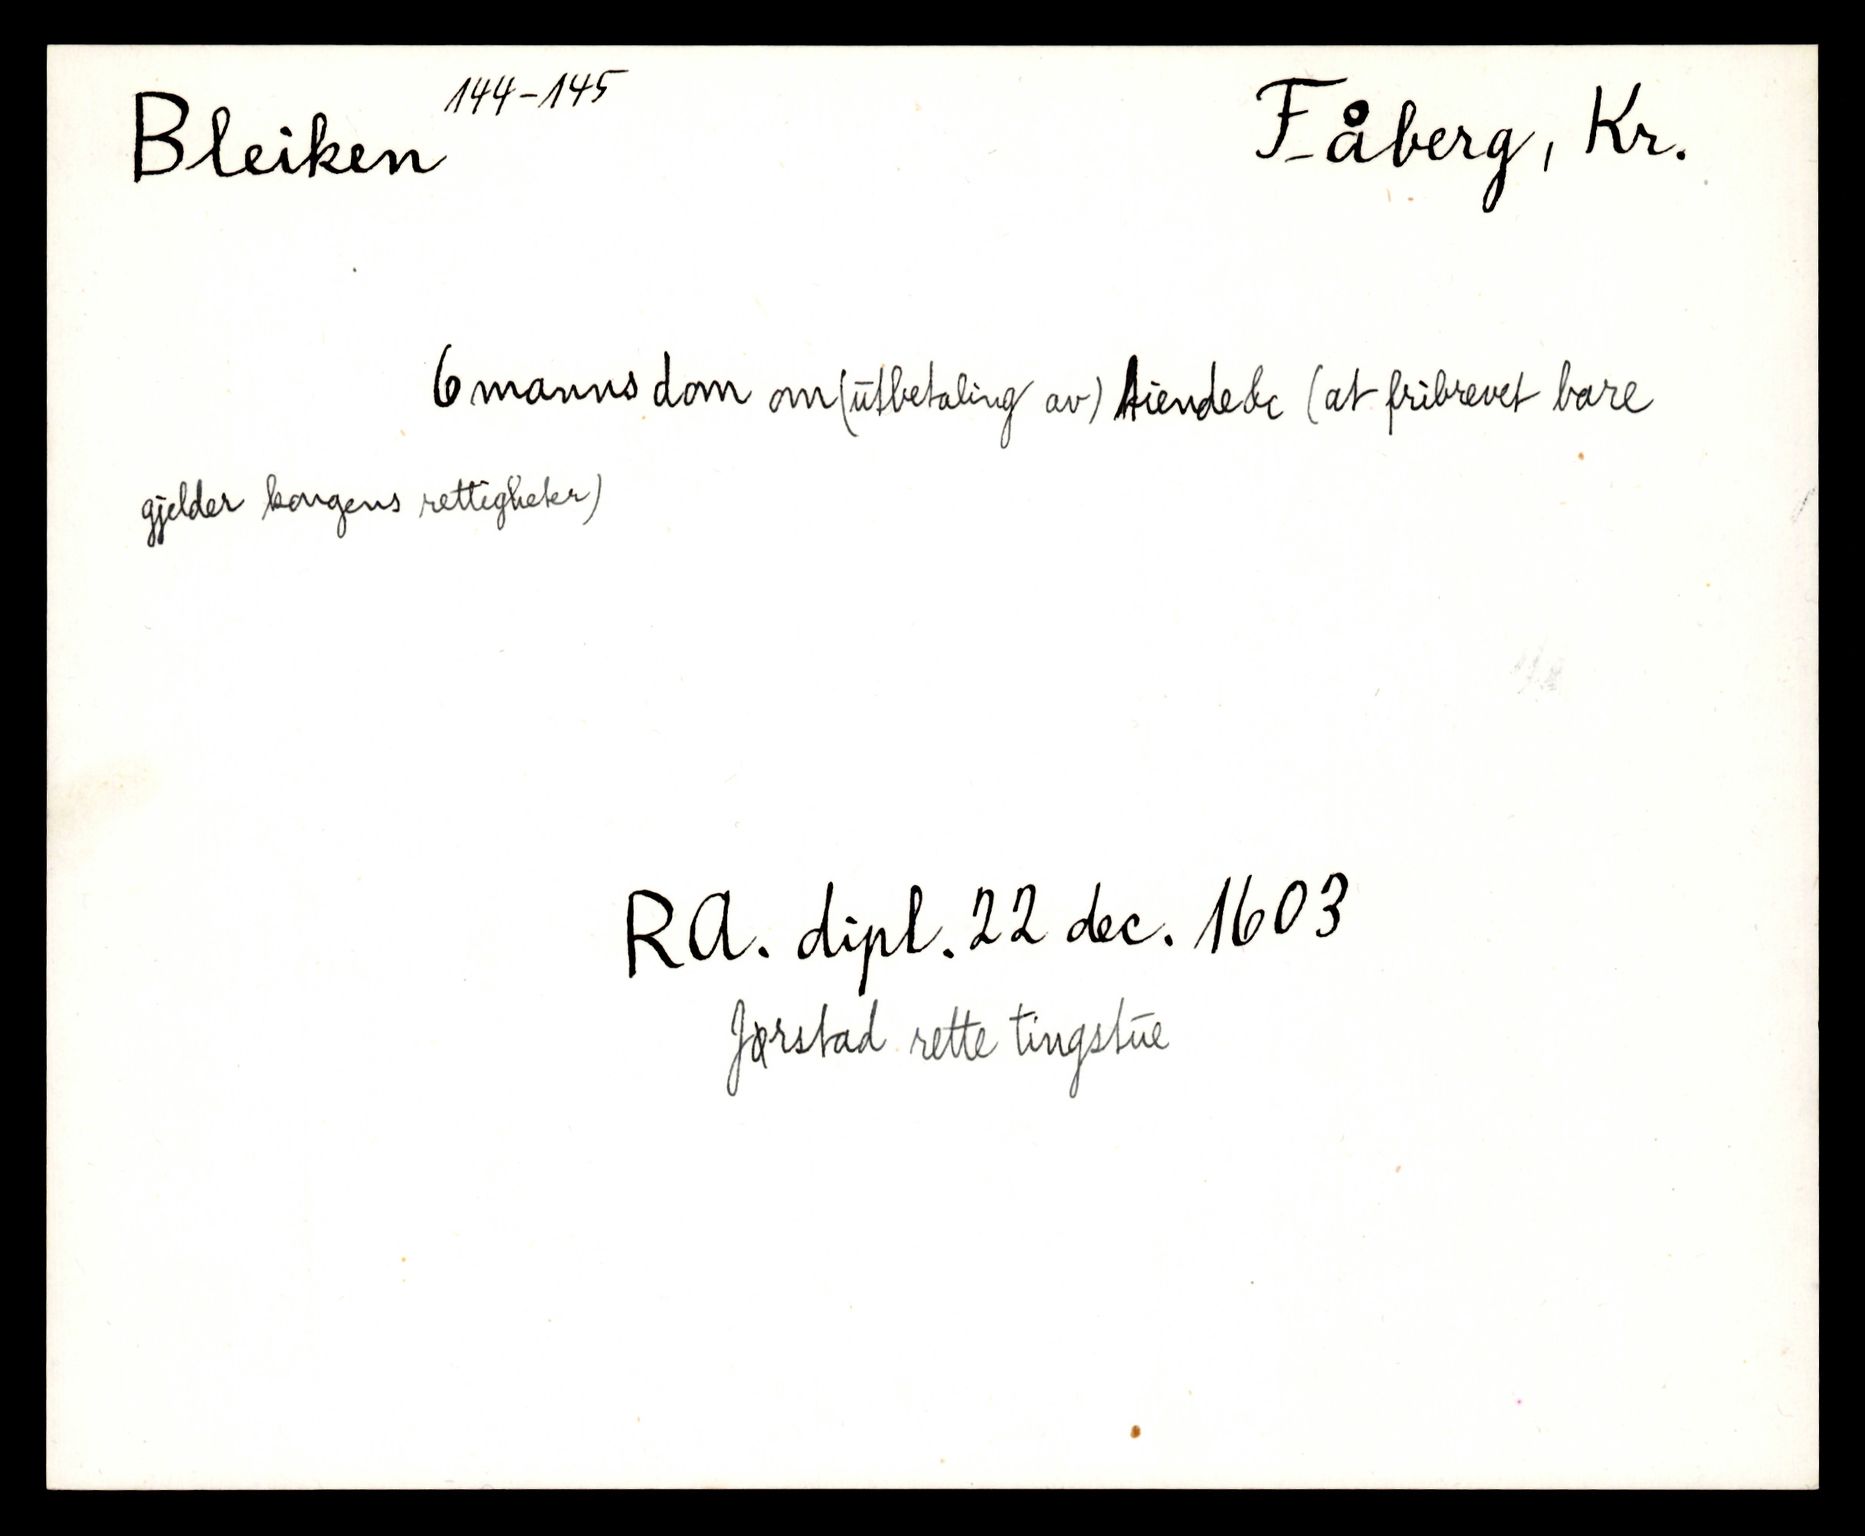 Bleiken 144-145 Fåberg, Kr.
6 manns dom om (utbetaling av) tiende &c (at fribrevet bare
gjelder kongens rettigheter)
RA. dipl. 22 dec. 1603
Jørstad rette tingstue